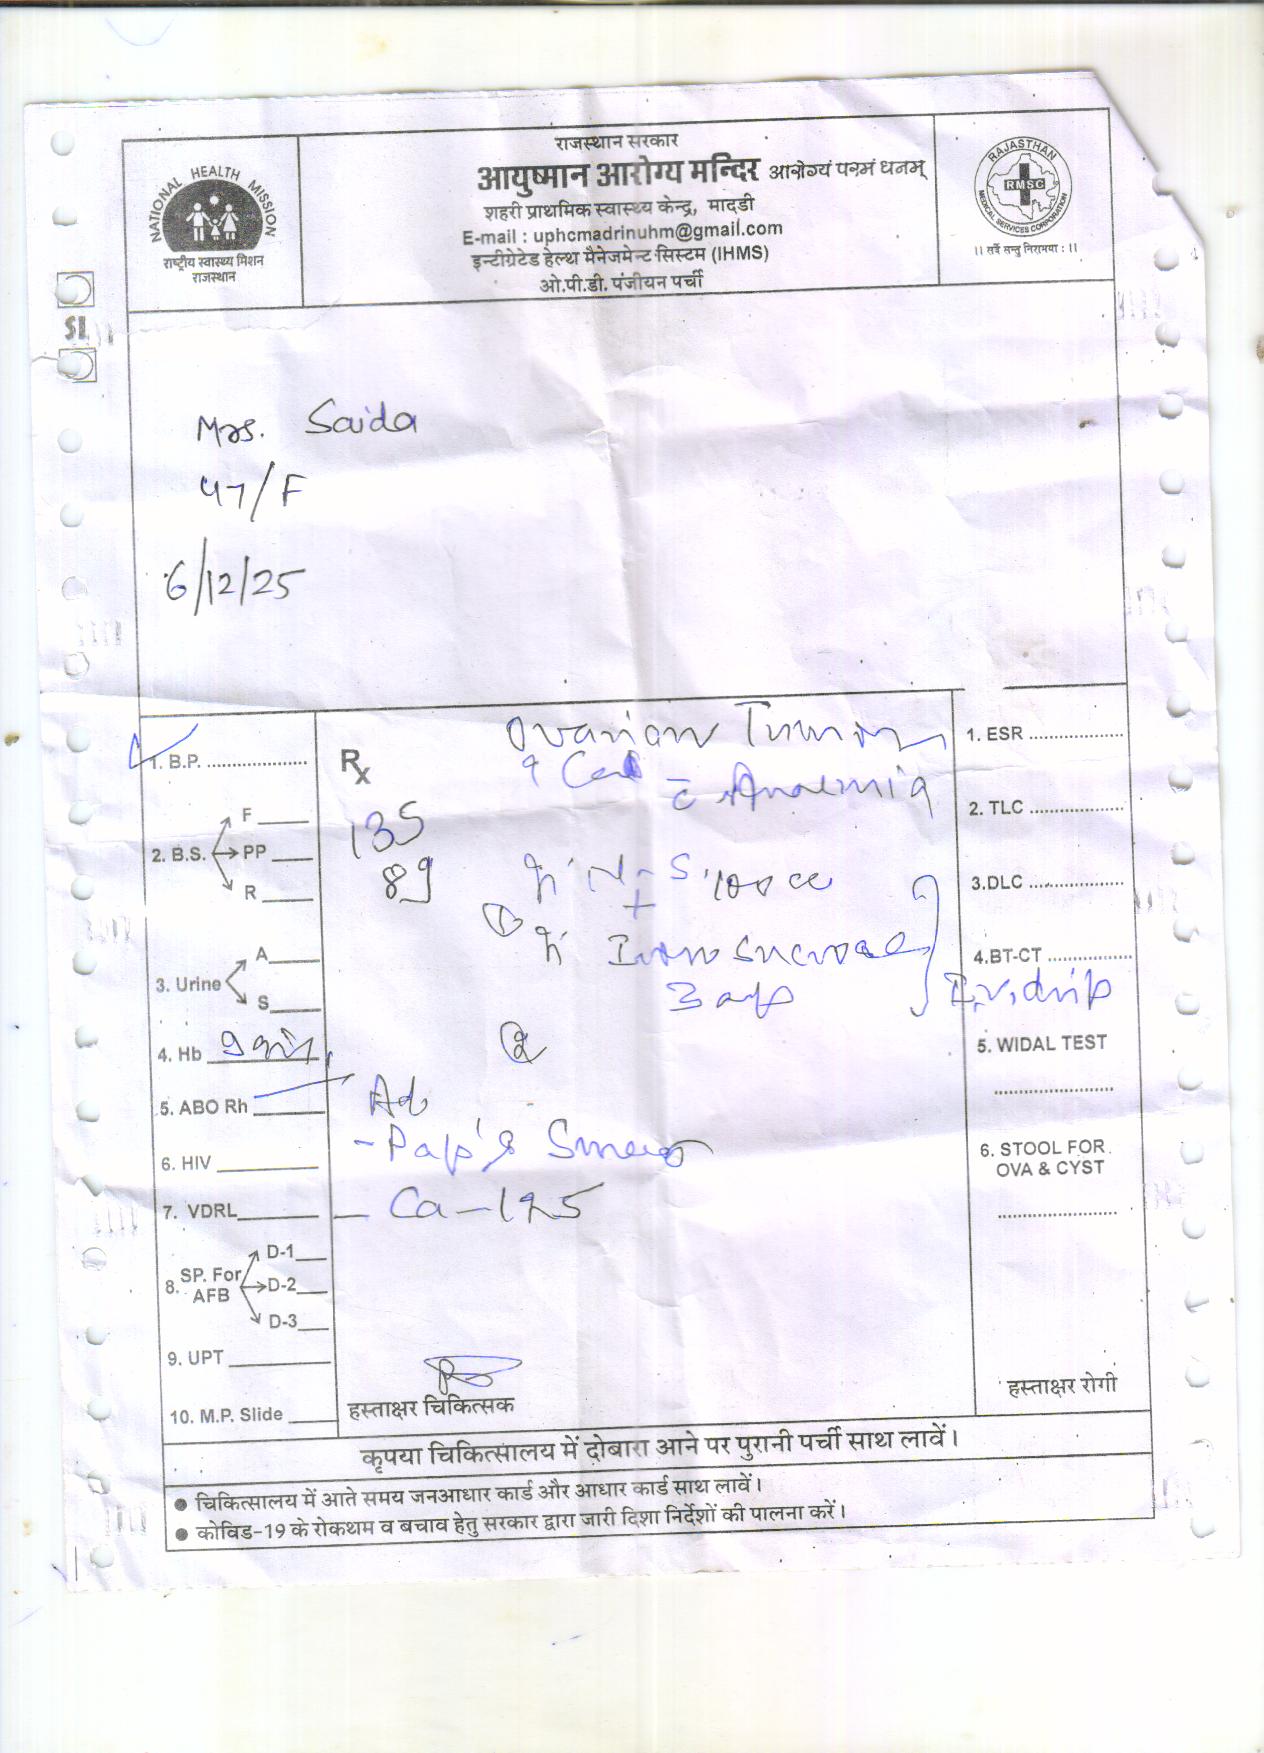 राजस्थान सरकार
आयुष्मान आरोग्य मन्दिर आरोग्यं परमं धनम्
शहरी प्राथमिक स्वास्थ्य केन्द्र, मादडी
E-mail : uphcmadrinuhm@gmail.com
इन्टीग्रेटेड हेल्थ मैनेजमेन्ट सिस्टम (IHMS)
ओ.पी.डी. पंजीयन पर्ची
NATIONAL HEALTH MISSION
राष्ट्रीय स्वास्थ्य मिशन
राजस्थान
RAJASTHAN
RMSC
MEDICAL SERVICES CORPORATION
।। सर्वे सन्तु निरामयाः ।।
Mrs. Saida
47/F
6/12/25
Ovarian Tumor
c Anaemia
1. B.P.
Rx
135
89
2. B.S.
F
PP
R
N-S 100 cc
+
① Iron Sucrose
3 amp
I.V. drip
3. Urine
A
S
②
4. Hb 9 gm
5. ABO Rh
Ad
- Pap's Smear
6. HIV
7. VDRL
- Ca-125
8. SP. For AFB
D-1
D-2
D-3
9. UPT
10. M.P. Slide
1. ESR
2. TLC
3.DLC
4.BT-CT
5. WIDAL TEST
6. STOOL FOR
OVA & CYST
हस्ताक्षर चिकित्सक
हस्ताक्षर रोगी
कृपया चिकित्सालय में दोबारा आने पर पुरानी पर्ची साथ लावें।
● चिकित्सालय में आते समय जनआधार कार्ड और आधार कार्ड साथ लावें।
● कोविड-19 के रोकथम व बचाव हेतु सरकार द्वारा जारी दिशा निर्देशों की पालना करें।